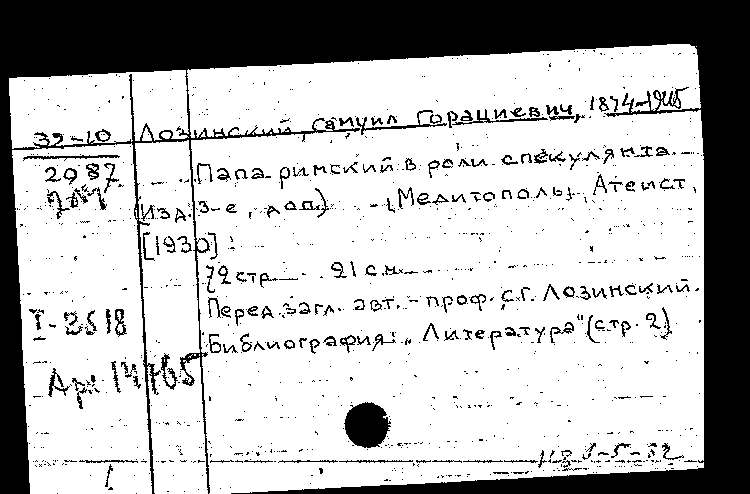 32-10 Лозинский, Самуил Горациевич, 1874-1945
2987 Папа римский в роли спекулянта.
(Изд. 3-е, доп.) (Мелитополь), Атеист,
[1930]
72 стр. 21 см.
Перед загл. авт. - проф. С.Г. Лозинский.
I-2518
Библиография: „Литература" (стр. 2)
Арх 14765